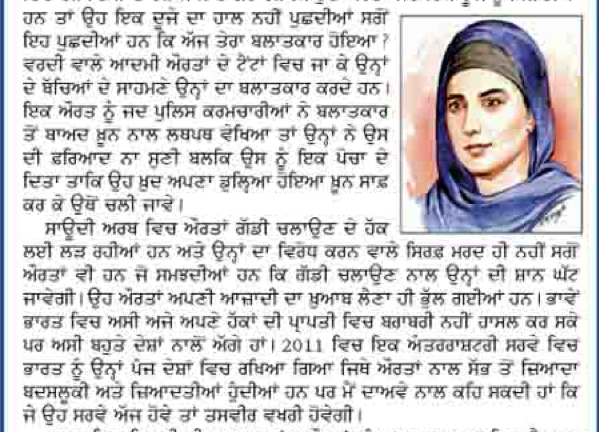 ਹਨ ਤਾਂ ਉਹ ਇਕ ਦੂਜੇ ਦਾ ਹਾਲ ਨਹੀਂ ਪੁਛਦੀਆਂ ਸਗੋਂ
ਇਹ ਪੁਛਦੀਆਂ ਹਨ ਕਿ ਅੱਜ ਤੇਰਾ ਬਲਾਤਕਾਰ ਹੋਇਆ?
ਵਰਦੀ ਵਾਲੇ ਆਦਮੀ ਔਰਤਾਂ ਦੇ ਟੈਂਟਾਂ ਵਿਚ ਜਾ ਕੇ ਉਨ੍ਹਾਂ
ਦੇ ਬੱਚਿਆਂ ਦੇ ਸਾਹਮਣੇ ਉਨ੍ਹਾਂ ਦਾ ਬਲਾਤਕਾਰ ਕਰਦੇ ਹਨ।
ਇਕ ਔਰਤ ਨੂੰ ਜਦ ਪੁਲਿਸ ਕਰਮਚਾਰੀਆਂ ਨੇ ਬਲਾਤਕਾਰ
ਤੋਂ ਬਾਅਦ ਖ਼ੂਨ ਨਾਲ ਲਥਪਥ ਵੇਖਿਆ ਤਾਂ ਉਨ੍ਹਾਂ ਨੇ ਉਸ
ਦੀ ਫ਼ਰਿਆਦ ਨਾ ਸੁਣੀ ਬਲਕਿ ਉਸ ਨੂੰ ਇਕ ਪੋਚਾ ਦੇ
ਦਿਤਾ ਤਾਕਿ ਉਹ ਖ਼ੁਦ ਅਪਣਾ ਡੁਲ੍ਹਿਆ ਹੋਇਆ ਖ਼ੂਨ ਸਾਫ਼
ਕਰ ਕੇ ਉਥੋਂ ਚਲੀ ਜਾਵੇ।
ਸਾਊਦੀ ਅਰਬ ਵਿਚ ਔਰਤਾਂ ਗੱਡੀ ਚਲਾਉਣ ਦੇ ਹੱਕ
ਲਈ ਲੜ ਰਹੀਆਂ ਹਨ ਅਤੇ ਉਨ੍ਹਾਂ ਦਾ ਵਿਰੋਧ ਕਰਨ ਵਾਲੇ ਸਿਰਫ਼ ਮਰਦ ਹੀ ਨਹੀਂ ਸਗੋਂ
ਔਰਤਾਂ ਵੀ ਹਨ ਜੋ ਸਮਝਦੀਆਂ ਹਨ ਕਿ ਗੱਡੀ ਚਲਾਉਣ ਨਾਲ ਉਨ੍ਹਾਂ ਦੀ ਸ਼ਾਨ ਘੱਟ
ਜਾਵੇਗੀ। ਉਹ ਔਰਤਾਂ ਅਪਣੀ ਆਜ਼ਾਦੀ ਦਾ ਖ਼ੁਆਬ ਲੈਣਾ ਹੀ ਭੁੱਲ ਗਈਆਂ ਹਨ। ਭਾਵੇਂ
ਭਾਰਤ ਵਿਚ ਅਸੀ ਅਜੇ ਅਪਣੇ ਹੱਕਾਂ ਦੀ ਪ੍ਰਾਪਤੀ ਵਿਚ ਬਰਾਬਰੀ ਨਹੀਂ ਹਾਸਲ ਕਰ ਸਕੇ
ਪਰ ਅਸੀ ਬਹੁਤੇ ਦੇਸ਼ਾਂ ਨਾਲੋਂ ਅੱਗੇ ਹਾਂ। 2011 ਵਿਚ ਇਕ ਅੰਤਰਰਾਸ਼ਟਰੀ ਸਰਵੇ ਵਿਚ
ਭਾਰਤ ਨੂੰ ਉਨ੍ਹਾਂ ਪੰਜ ਦੇਸ਼ਾਂ ਵਿਚ ਰਖਿਆ ਗਿਆ ਜਿਥੇ ਔਰਤਾਂ ਨਾਲ ਸੱਭ ਤੋਂ ਜ਼ਿਆਦਾ
ਬਦਸਲੂਕੀ ਅਤੇ ਜ਼ਿਆਦਤੀਆਂ ਹੁੰਦੀਆਂ ਹਨ ਪਰ ਮੈਂ ਦਾਅਵੇ ਨਾਲ ਕਹਿ ਸਕਦੀ ਹਾਂ ਕਿ
ਜੇ ਉਹ ਸਰਵੇ ਅੱਜ ਹੋਵੇ ਤਾਂ ਤਸਵੀਰ ਵਖਰੀ ਹੋਵੇਗੀ।